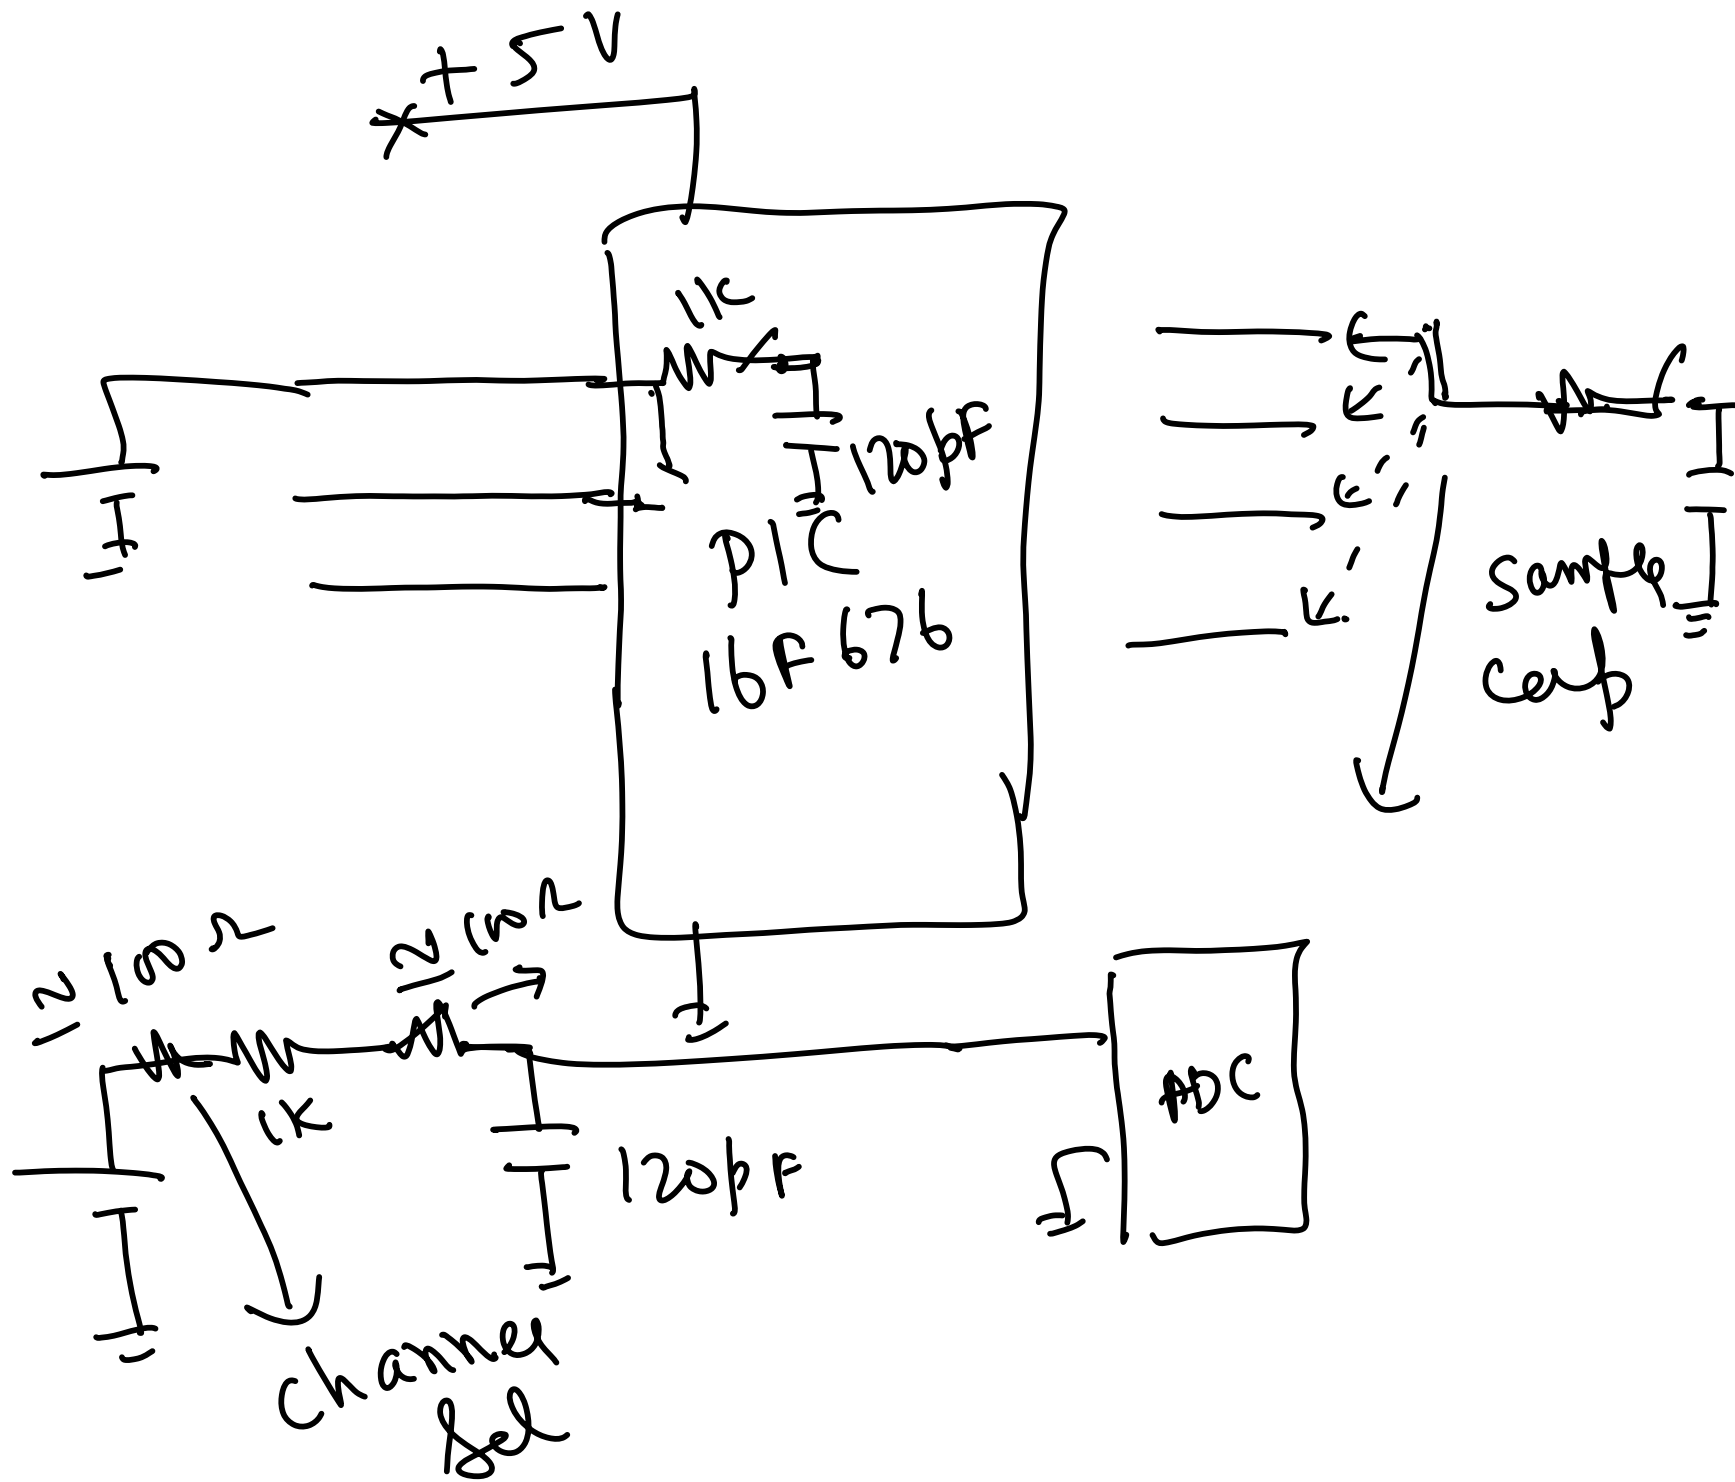 +5V
1K
120pF
PIC
16F676
Sample
Cap
≈ 100Ω
≈ 100Ω
1K
120pF
ADC
Channel
Sel